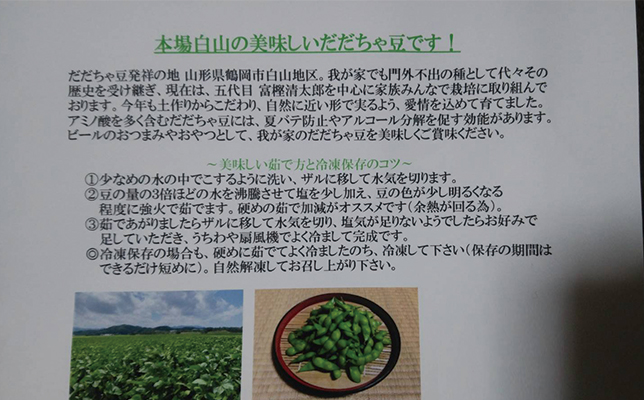 本場白山の美味しいだだちゃ豆です！
だだちゃ豆発祥の地 山形県鶴岡市白山地区。我が家でも門外不出の種として代々その
歴史を受け継ぎ、現在は、五代目 富樫清太郎を中心に家族みんなで栽培に取り組んで
おります。今年も土作りからこだわり、自然に近い形で実るよう、愛情を込めて育てました。
アミノ酸を多く含むだだちゃ豆には、夏バテ防止やアルコール分解を促す効能があります。
ビールのおつまみやおやつとして、我が家のだだちゃ豆を美味しくご賞味ください。
～美味しい茹で方と冷凍保存のコツ～
①少なめの水の中でこするように洗い、ザルに移して水気を切ります。
②豆の量の3倍ほどの水を沸騰させて塩を少し加え、豆の色が少し明るくなる
程度に強火で茹でます。硬めの茹で加減がオススメです（余熱が回る為）。
③茹であがりましたらザルに移して水気を切り、塩気が足りないようでしたらお好みで
足していただき、うちわや扇風機でよく冷まして完成です。
◎冷凍保存の場合も、硬めに茹でてよく冷ましたのち、冷凍して下さい（保存の期間は
できるだけ短めに）。自然解凍してお召し上がり下さい。